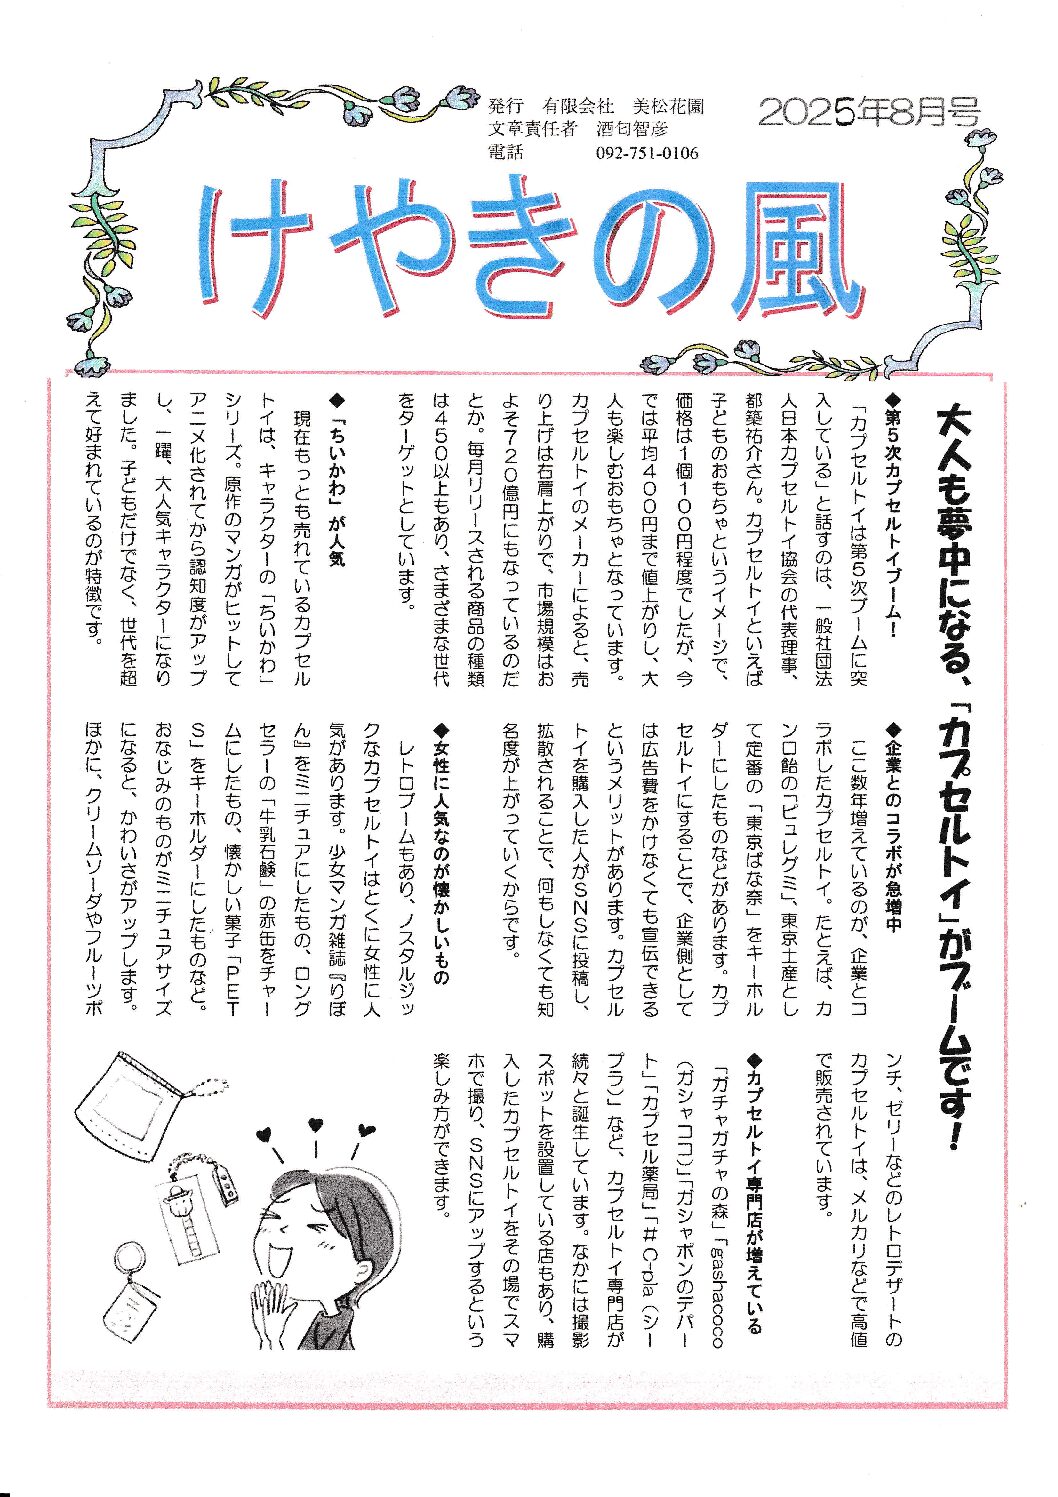 発行　有限会社　美松花園
文章責任者　酒匂智彦
電話　092-751-0106
2025年8月号
けやきの風
大人も夢中になる、「カプセルトイ」がブームです！
◆第5次カプセルトイブーム！
「カプセルトイは第5次ブームに突
入している」と話すのは、一般社団法
人日本カプセルトイ協会の代表理事、
都築祐介さん。カプセルトイといえば
子どものおもちゃというイメージで、
価格は1個100円程度でしたが、今
では平均400円まで値上がりし、大
人も楽しむおもちゃとなっています。
カプセルトイのメーカーによると、売
り上げは右肩上がりで、市場規模はお
よそ720億円にもなっているのだ
とか。毎月リリースされる商品の種類
は450以上もあり、さまざまな世代
をターゲットとしています。
◆「ちいかわ」が人気
現在もっとも売れているカプセル
トイは、キャラクターの「ちいかわ」
シリーズ。原作のマンガがヒットして
アニメ化されてから認知度がアップ
し、一躍、大人気キャラクターになり
ました。子どもだけでなく、世代を超
えて好まれているのが特徴です。
◆企業とのコラボが急増中
ここ数年増えているのが、企業とコ
ラボしたカプセルトイ。たとえば、カ
ンロ飴の「ピュレグミ」、東京土産とし
て定番の「東京ばな奈」をキーホル
ダーにしたものなどがあります。カプ
セルトイにすることで、企業側として
は広告費をかけなくても宣伝できる
というメリットがあります。カプセル
トイを購入した人がSNSに投稿し、
拡散されることで、何もしなくても知
名度が上がっていくからです。
◆女性に人気なのが懐かしいもの
レトロブームもあり、ノスタルジッ
クなカプセルトイはとくに女性に人
気があります。少女マンガ雑誌『りぼ
ん』をミニチュアにしたもの、ロング
セラーの「牛乳石鹸」の赤缶をチャー
ムにしたもの、懐かしい菓子「PET
S」をキーホルダーにしたものなど。
おなじみのものがミニチュアサイズ
になると、かわいさがアップします。
ほかに、クリームソーダやフルーツポ
ンチ、ゼリーなどのレトロデザートの
カプセルトイは、メルカリなどで高値
で販売されています。
◆カプセルトイ専門店が増えている
「ガチャガチャの森」「gashacoco
（ガシャココ）」「ガシャポンのデパー
ト」「カプセル薬局」「#C-pla（シー
プラ）」など、カプセルトイ専門店が
続々と誕生しています。なかには撮影
スポットを設置している店もあり、購
入したカプセルトイをその場でスマ
ホで撮り、SNSにアップするという
楽しみ方ができます。